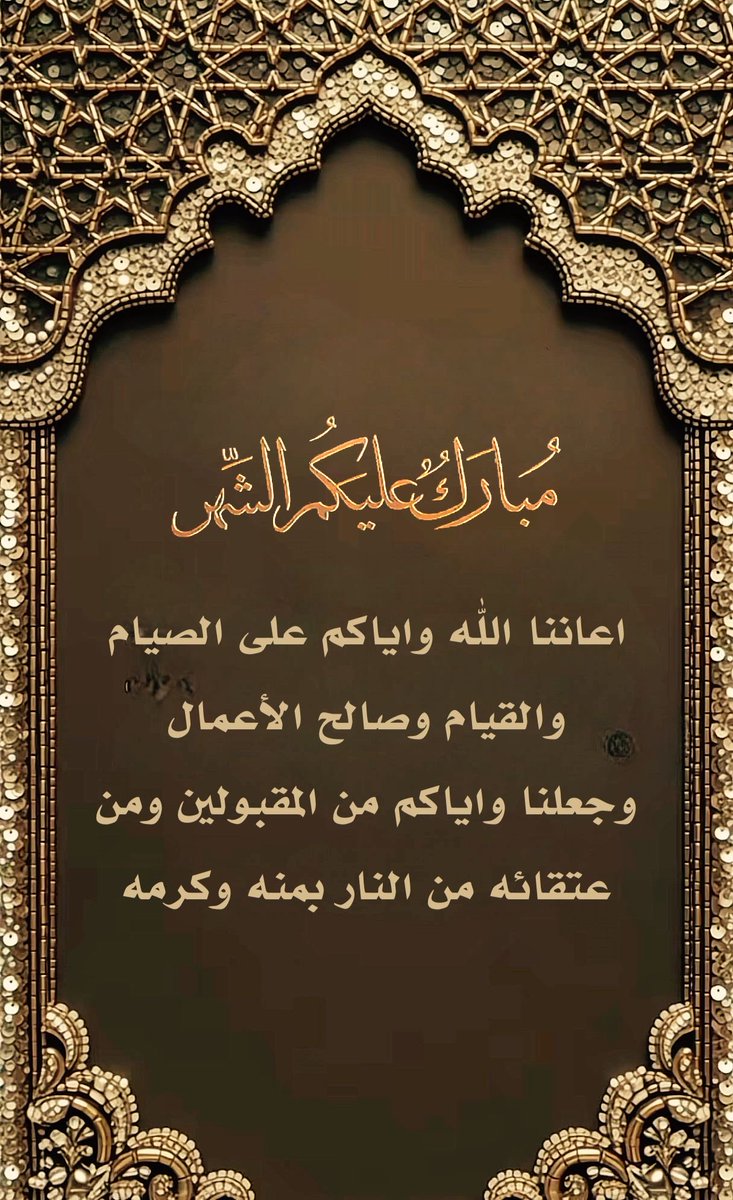 مُبارَكٌ عليكُم الشَّهر
اعاننا الله واياكم على الصيام
والقيام وصالح الأعمال
وجعلنا واياكم من المقبولين ومن
عتقائه من النار بمنه وكرمه